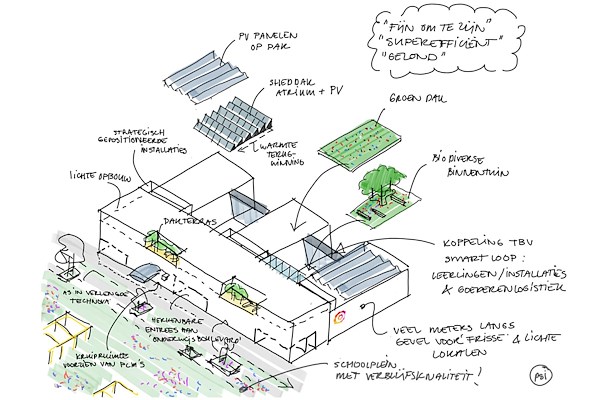 PV PANELEN
OP DAK
"FIJN OM TE ZIJN"
"SUPEREFFICIËNT"
"GEZOND"
SHEDDAK
ATRIUM + PV
GROEN DAK
STRATEGISCH
GEPOSITIONEERDE
INSTALLATIES
WARMTE
TERUG-
WINNING
BIODIVERSE
BINNENTUIN
LICHTE OPBOUW
DAKTERRAS
KOPPELING TBV
SMART LOOP:
LEERLINGEN/INSTALLATIES
& GOEDERENLOGISTIEK
AS IN VERLENGDE
TECHNOVA
HERKENBARE
ENTREES AAN
'ONDERWIJSBOULEVARD'
KRUIPRUIMTES
VOORZIEN VAN PCM'S
VEEL METERS LANGS
GEVEL VOOR 'FRISSE' & LICHTE
LOKALEN
SCHOOLPLEIN
MET VERBLIJFSKWALITEIT!
PSI